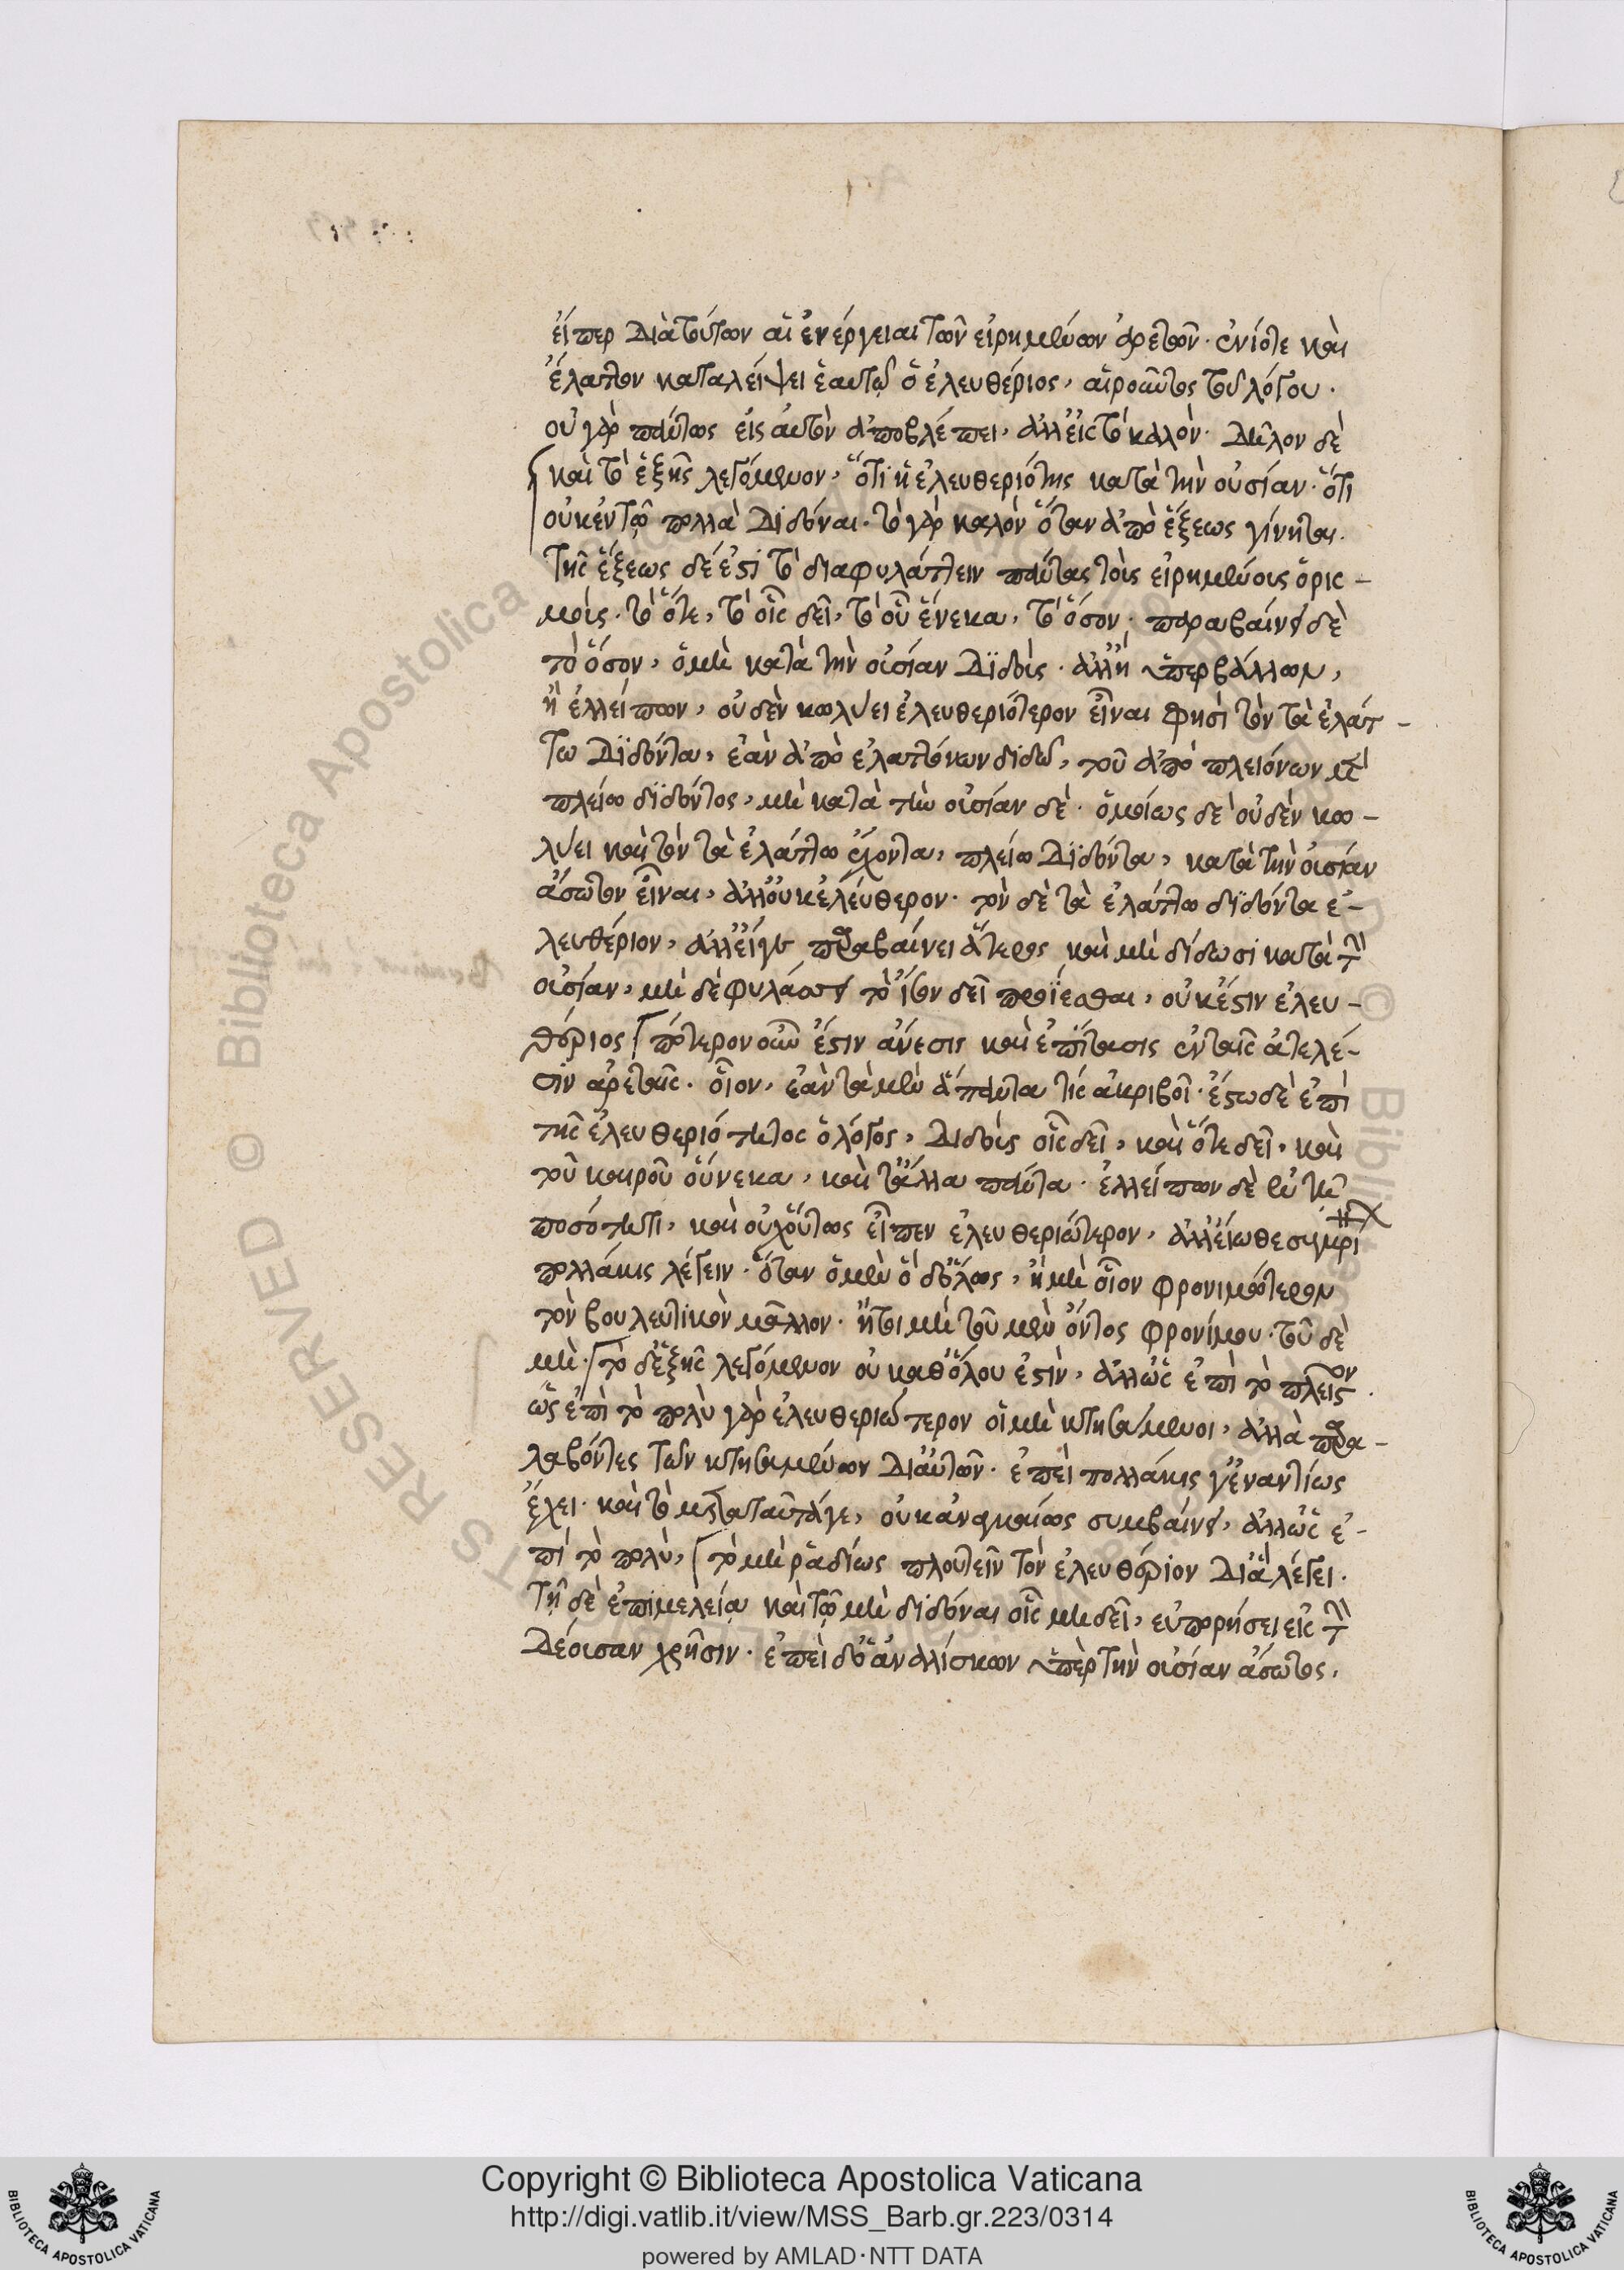 εἴπερ διὰ τούτων αἱ ἐνέργειαι τῶν εἰρημένων ἀρετῶν. ἐνίοτε καὶ
ἔλαττον καταλείψει ἑαυτῷ ὁ ἐλευθέριος, αἱροῦντος τοῦ λόγου.
οὐ γὰρ πάντως εἰς αὐτὸν ἀποβλέπει, ἀλλ' εἰς τὸ καλόν. δῆλον δὲ
καὶ τὸ ἑξῆς λεγόμενον, ὅτι ἡ ἐλευθεριότης κατὰ τὴν οὐσίαν. ὅτι
οὐκ ἐν τῷ πολλὰ διδόναι. τὸ γὰρ καλὸν ὅταν ἀπὸ ἕξεως γίνηται.
τῆς ἕξεως δέ ἐστι τὸ διαφυλάττειν πάντας τοῖς εἰρημένους ὁρισ-
μοῖς. τὸ ὅτε, τὸ οἷς δεῖ, τὸ οὗ ἕνεκα, τὸ ὅσον. παραβαίνει δὲ
τὸ ὅσον, ὁ μὴ κατὰ τὴν οὐσίαν διδούς. ἀλλ' ἢ ὑπερβάλλων,
ἢ ἐλλείπων, οὐδὲν κωλύει ἐλευθεριότερον εἶναι φησὶ τὸν τὰ ἐλάτ-
τω διδόντα, ἐὰν ἀπὸ ἐλαττόνων διδῷ, τοῦ ἀπὸ πλειόνων μὲν
πλείω διδόντος, μὴ κατὰ τὴν οὐσίαν δέ. ὁμοίως δὲ οὐδὲν κω-
λύει καὶ τὸν τὰ ἐλάττω ἔχοντα, πλείω διδόντα, κατὰ τὴν οὐσίαν
ἄσωτον εἶναι, ἀλλ' οὐκ ἐλεύθερον. τὸν δὲ τὰ ἐλάττω διδόντα ἐ-
λευθέριον, ἀλλ' εἴγε παραβαίνει ἅτερος καὶ μὴ δίδωσι κατὰ τὴν
οὐσίαν, μὴ δὲ φυλάσσει τὸ ἐφ' ὃν δεῖ προΐεσθαι, οὐκ ἔστιν ἐλευ-
θέριος πότερον οὖν ἔστιν ἄνεσις καὶ ἐπίτασις ἐν ταῖς ἀτελέ-
σιν ἀρεταῖς. οἷον, ἐὰν τὰ μὲν ἅπαντα τὶς ἀκριβοῖ. ἔστω δὲ ἐπὶ
τῆς ἐλευθεριότητος ὁ λόγος, διδοὺς οἷς δεῖ, καὶ ὅτε δεῖ, καὶ
τοῦ καιροῦ οὕνεκα, καὶ τἄλλα πάντα. ἐλλείπων δὲ ἐν τῇ
ποσότητι, καὶ οὐχ οὕτως εἶπεν ἐλευθεριώτερον, ἀλλ' εἴωθε συγκρί
πολλάκις λέγειν. ὅταν ὁ μὲν ὁ δ' ὅλως, ἢ μὴ οἷον φρονιμώτερον
τὸν βουλευτικὸν μᾶλλον. ἤτοι μὴ τοῦ μὲν ὄντος φρονίμου. τοῦ δὲ
μή. τὸ δ' ἑξῆς λεγόμενον οὐ καθόλου ἐστίν, ἀλλ' ὡς ἐπὶ τὸ πλεῖστον.
ὡς ἐπὶ τὸ πολὺ γὰρ ἐλευθεριώτερον οἱ μὴ κτησάμενοι, ἀλλὰ παρα-
λαβόντες τῶν κτησαμένων δι' αὐτῶν. ἐπεὶ πολλάκις γ' ἐναντίως
ἔχει. καὶ τὸ μετὰ ταῦτά γε, οὐκ ἀναγκαίως συμβαίνει, ἀλλ' ὡς ἐ-
πὶ τὸ πολὺ, τὸ μὴ ῥᾳδίως πλουτεῖν τὸν ἐλευθέριον δι' ἃ λέγει.
τῇ δὲ ἐπιμελείᾳ καὶ τῷ μὴ διδόναι οἷς μὴ δεῖ, εὐπορήσει εἰς τὴν
δέουσαν χρῆσιν. ἐπεὶ δ' ὁ ἀναλίσκων ὑπὲρ τὴν οὐσίαν ἄσωτος.
Copyright © Biblioteca Apostolica Vaticana
http://digi.vatlib.it/view/MSS_Barb.gr.223/0314
powered by AMLAD·NTT DATA